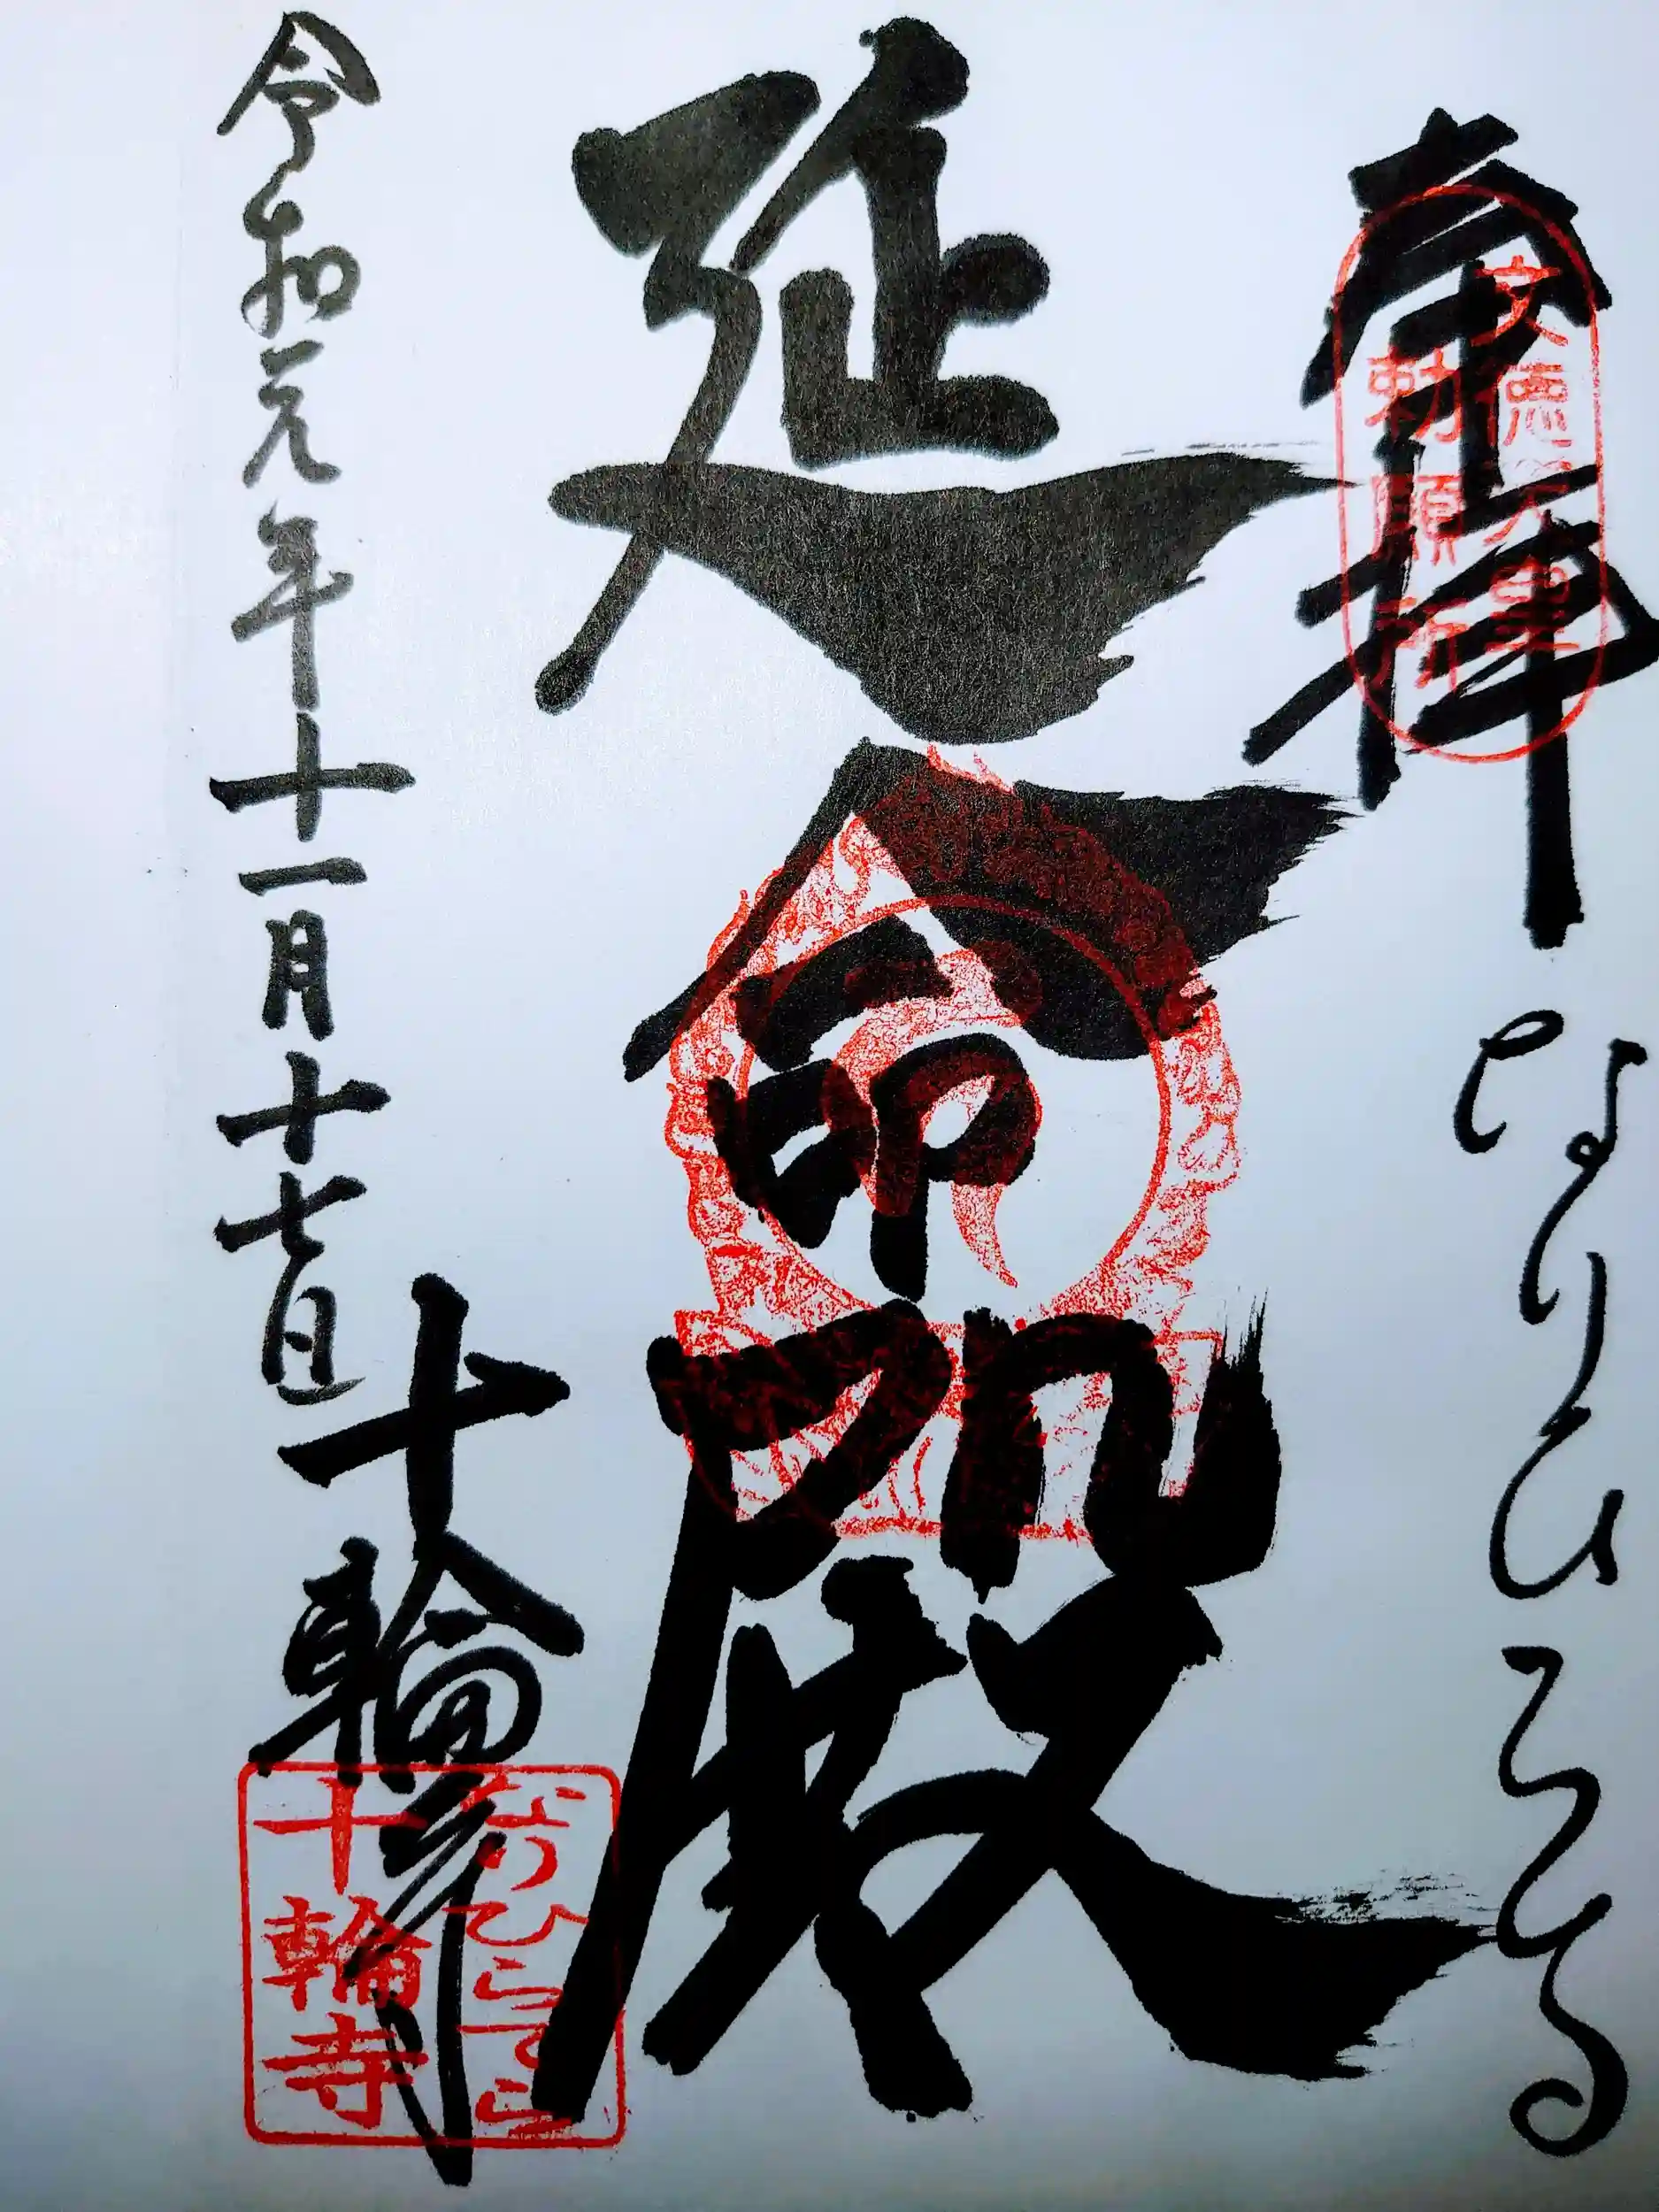 奉拝
文徳天皇
勅願所
なりひらてら
延命殿
令和元年十一月十七日
十輪寺
なりひらてら
十輪寺